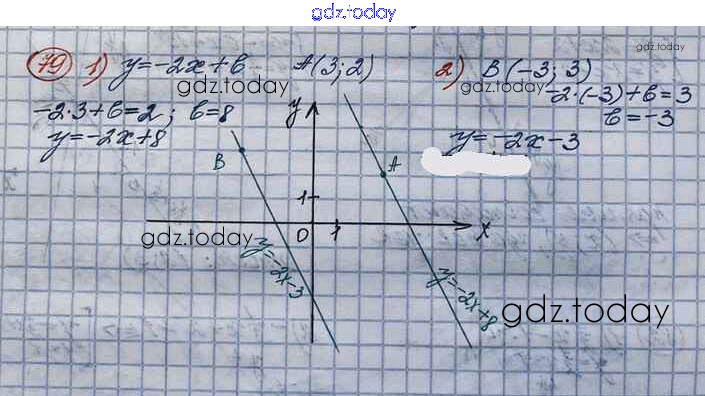 gdz.today
gdz.today
79 1) y=-2x+b A(3;2) 2) B(-3; 3)
gdz.today gdz.today
-2·3+b=2; b=8 -2·(-3)+b=3
y=-2x+8 b=-3
y=-2x-3
y
B A
1
0 1 x
gdz.today
y=-2x-3 y=-2x+8
gdz.today